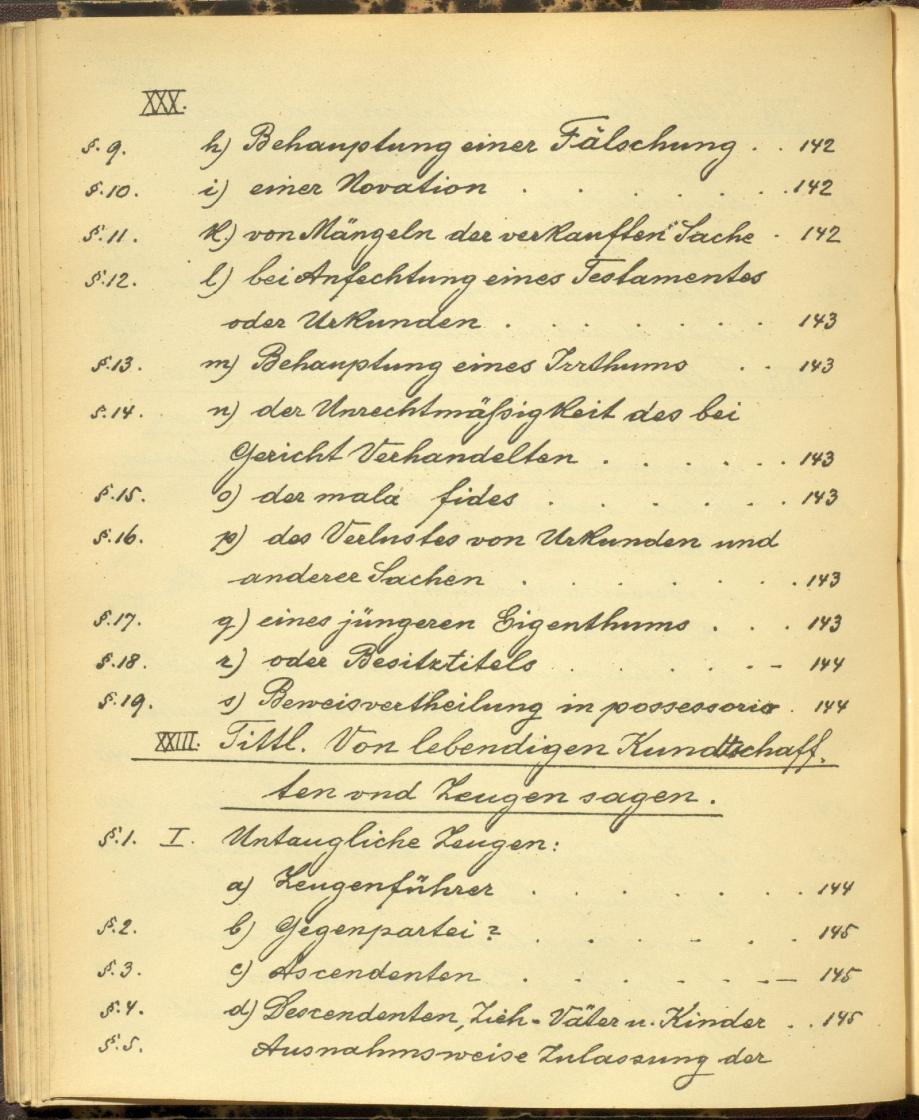 XXX.
§. 9. h) Behauptung einer Fälschung . . 142
§. 10. i) einer Novation . . . . . . 142
§. 11. k.) von Mängeln der verkauften Sache . 142
§. 12. l) bei Anfechtung eines Testamentes
oder Urkunden . . . . . . . 143
§. 13. m) Behauptung eines Irrthums . . 143
§. 14. n) der Unrechtmäßigkeit des bei
Gericht Verhandelten . . . . . 143
§. 15. o) der mala fides . . . . . . 143
§. 16. p) des Verlustes von Urkunden und
anderer Sachen . . . . . . 143
§. 17. q) eines jüngeren Eigenthums . . . 143
§. 18. r) oder Besitztitels . . . . . 144
§. 19. s) Beweisvertheilung in possessorio . 144
XXIII. Tittl. Von lebendigen Kundtschaff-
ten vnd Zeugen sagen.
§. 1. I. Untaugliche Zeugen:
a) Zeugenführer . . . . . . . 144
§. 2. b) Gegenpartei? . . . . . . 145
§. 3. c) Ascendenten . . . . . . 145
§. 4. d) Descendenten, Zieh-Väter u. Kinder . . 145
§. 5. Ausnahmsweise Zulassung der